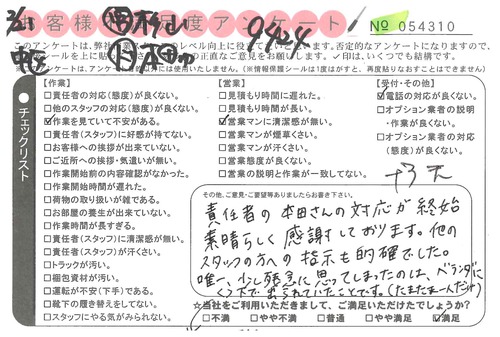 お客様満足度アンケート
№ 054310
3/21
9424
このアンケートは、弊社
チェックリスト
【作業】
□責任者の対応(態度)が良くない。
□他のスタッフの対応(態度)が良くない。
☑作業を見ていて不安がある。
□責任者(スタッフ)に好感が持てない。
□お客様への挨拶が出来ていない。
□ご近所への挨拶・気遣いが無い。
□作業開始前の内容確認がなかった。
□作業開始時間が遅れた。
□荷物の取り扱いが雑である。
□お部屋の養生が出来ていない。
□作業時間が長すぎる。
□責任者(スタッフ)に清潔感が無い。
□責任者(スタッフ)が汗くさい。
□トラックが汚い。
□梱包資材が汚い。
□運転が不安(下手)である。
□靴下の履き替えをしてない。
□スタッフにやる気がみられない。
【営業】
□見積もり時間に遅れた。
□見積もり時間が長い。
☑営業マンに清潔感が無い。
□営業マンが煙草くさい。
□営業マンが汗くさい。
□営業態度が良くない。
□営業の説明と作業が一致してない。
【受付・その他】
☑電話の対応が良くない。
□オプション業者の説明
・作業が良くない。
□オプション業者の対応
(態度)が良くない。
その他、ご意見・ご要望等ありましたらお書き下さい。
責任者の本田さんの対応が終始
素晴らしく感謝しております。他の
スタッフの方への指示も的確でした。
唯一、少し残念に思ってしまったのは、ベランダに
くつ下で出られていたことです。(たまたま一人だけ)
☆当社をご利用いただきまして、ご満足いただけたでしょうか?
□不満 □やや不満 □普通 □やや満足 ☑満足